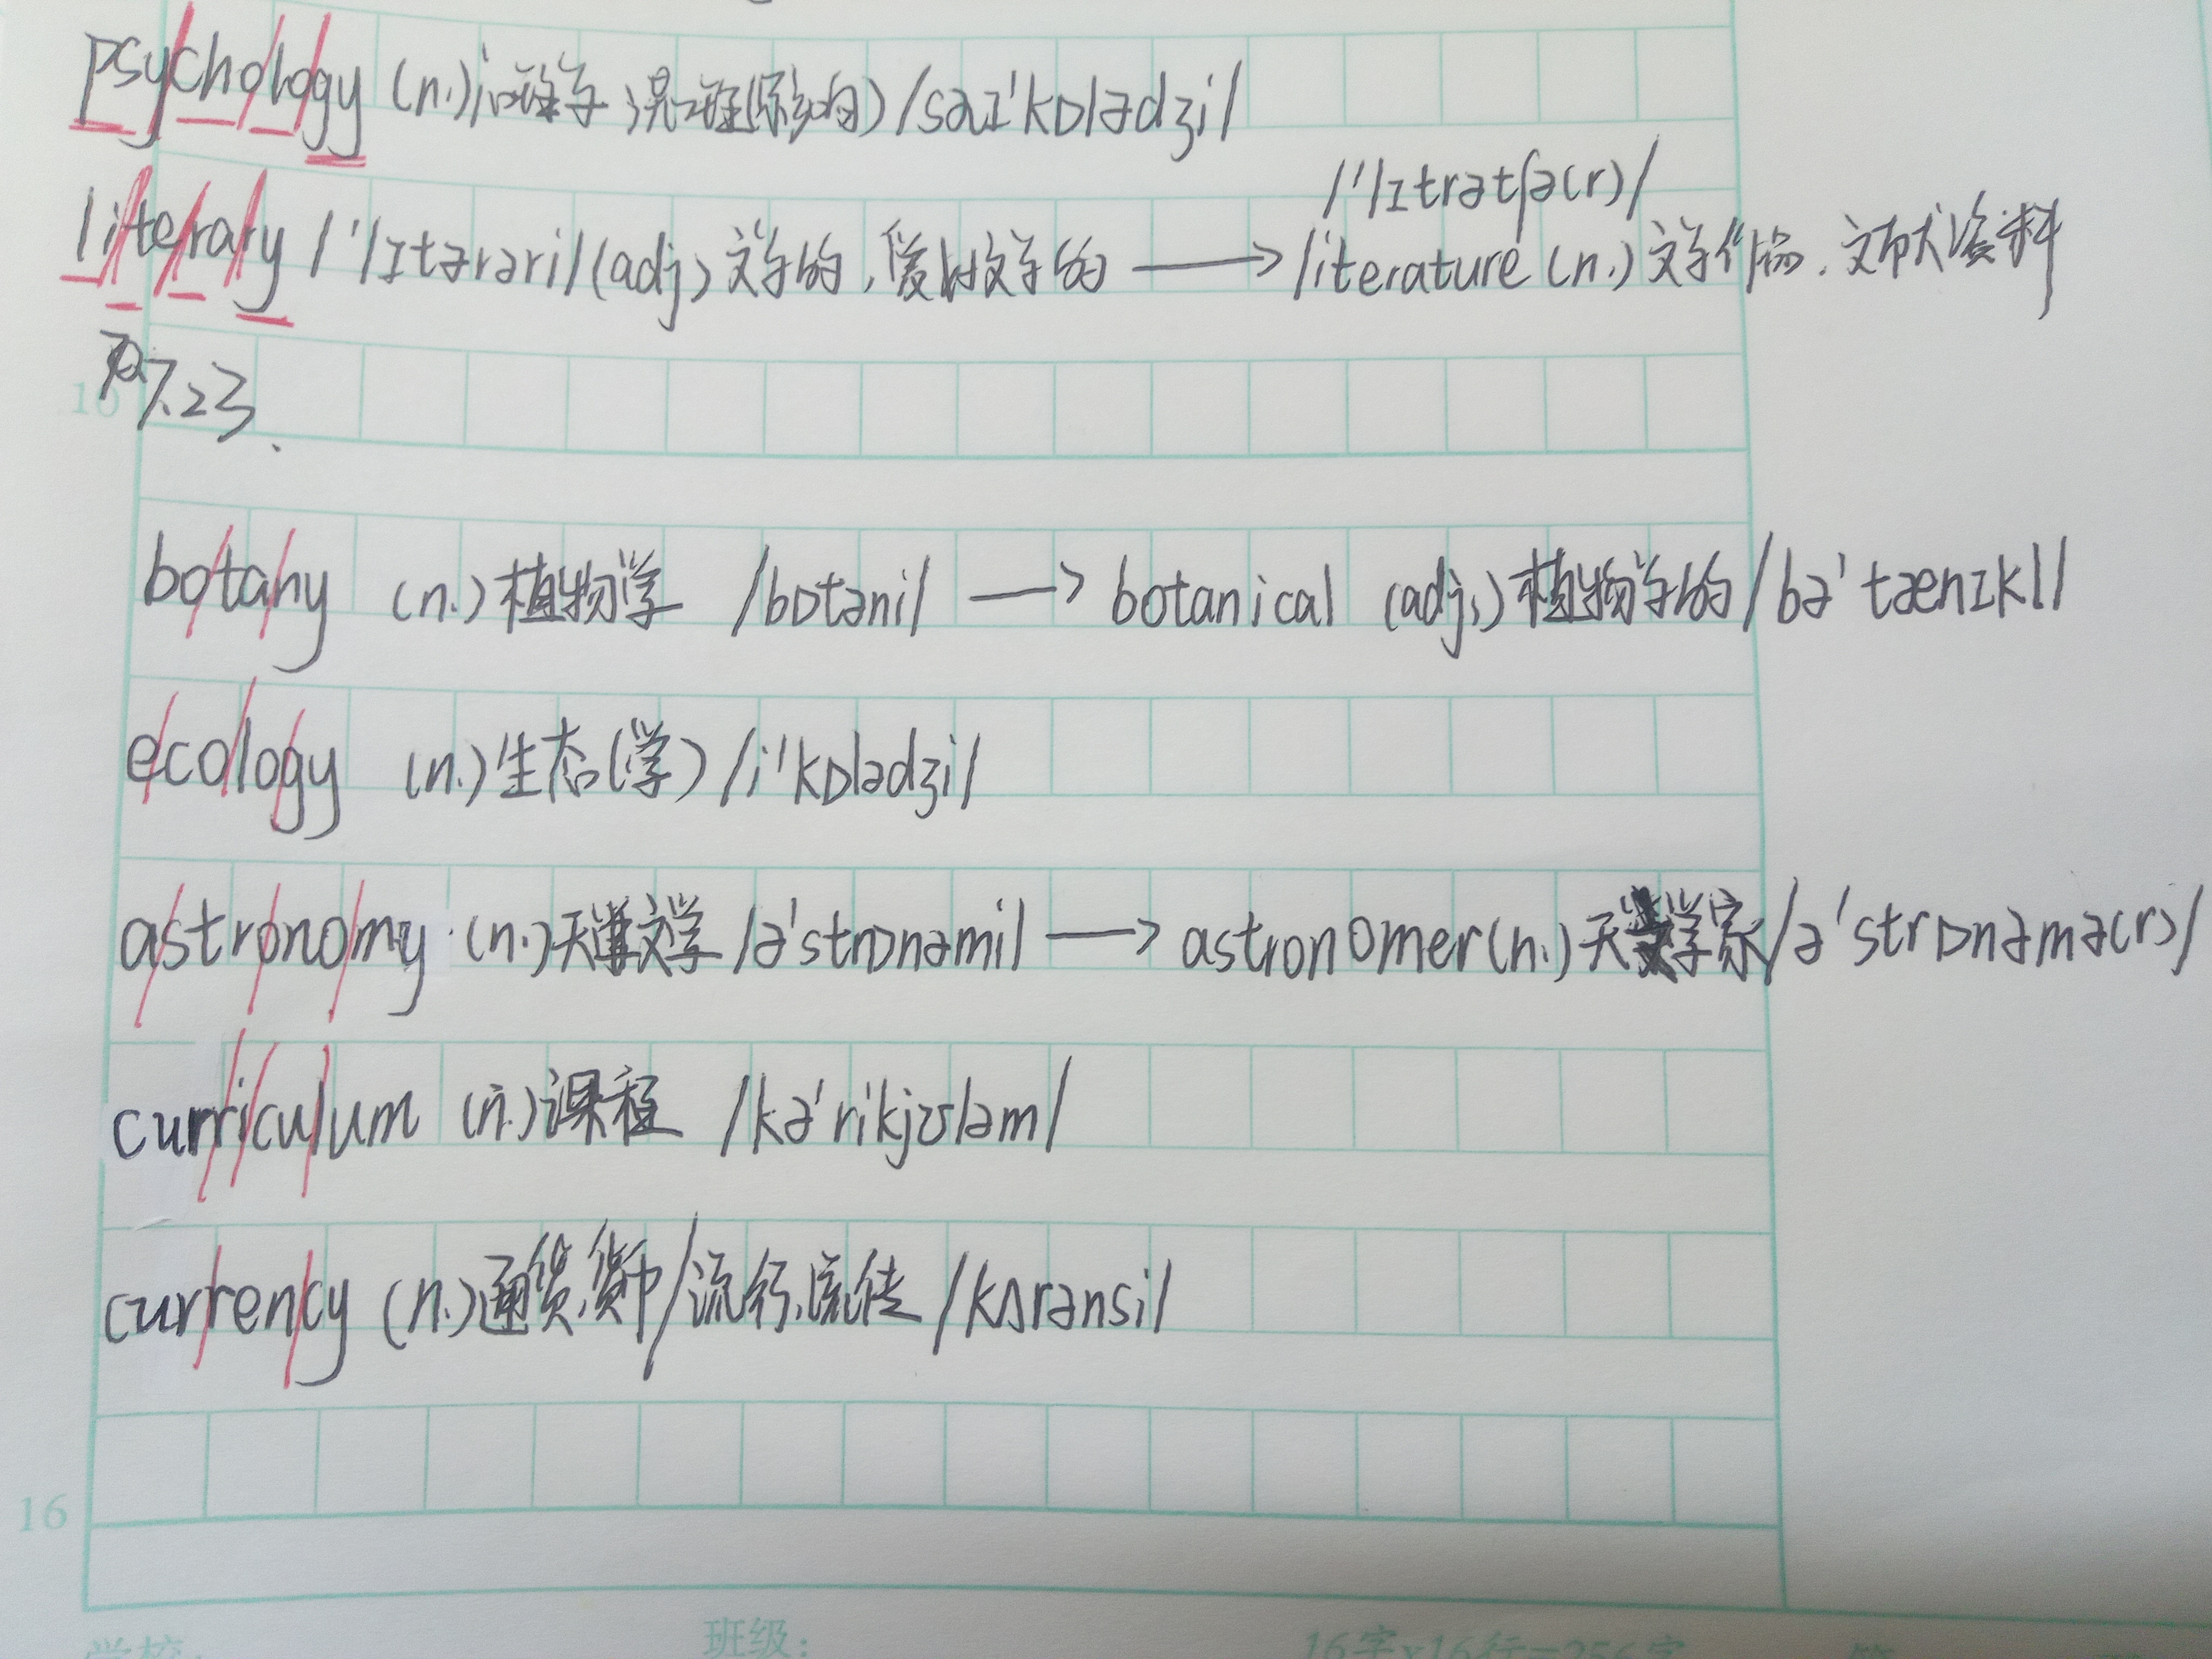 psychology (n.)心理学;心理(影响) /saɪ'kɒlədʒi/
/'lɪtrətʃə(r)/
literary /'lɪtərəri/ (adj) 文学的,爱好文学的 → literature (n.) 文学作品.文献资料
7.23.
botany (n.) 植物学 /bɒtəni/ → botanical (adj.) 植物学的 /bə'tænɪkl/
ecology (n.) 生态(学) /i'kɒlədʒi/
astronomy (n.) 天文学 /ə'strɒnəmi/ → astronomer (n.) 天文学家 /ə'strɒnəmə(r)/
curriculum (n.) 课程 /kə'rikjʊləm/
currency (n.) 通货,货币/流行,流传 /kʌrənsi/
16
学校:
班级:
16字x16行=256字